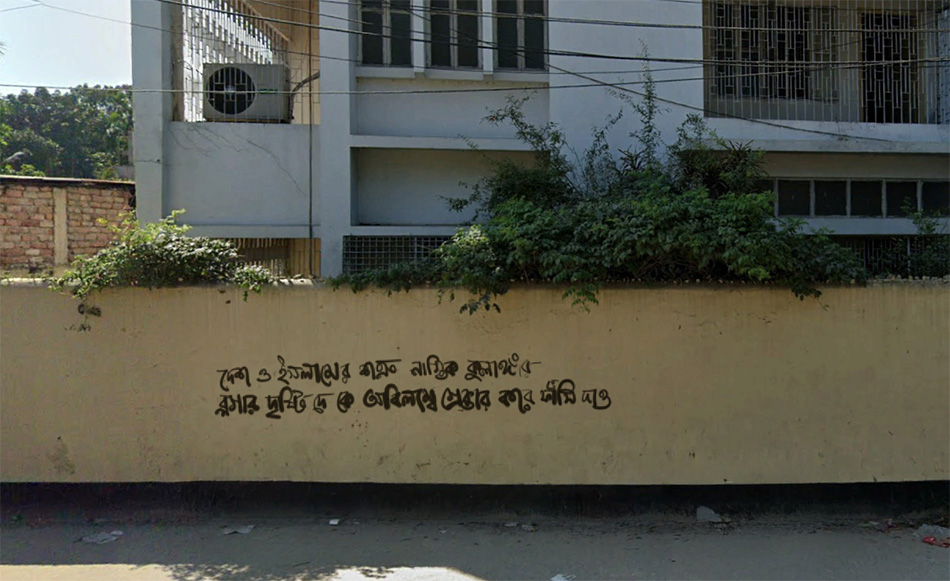 দেশ ও ইসলামের শত্রু নাস্তিক কুলাঙ্গার
ব্লগার দৃষ্টি দে কে অবিলম্বে গ্রেপ্তার করে ফাঁসি দাও